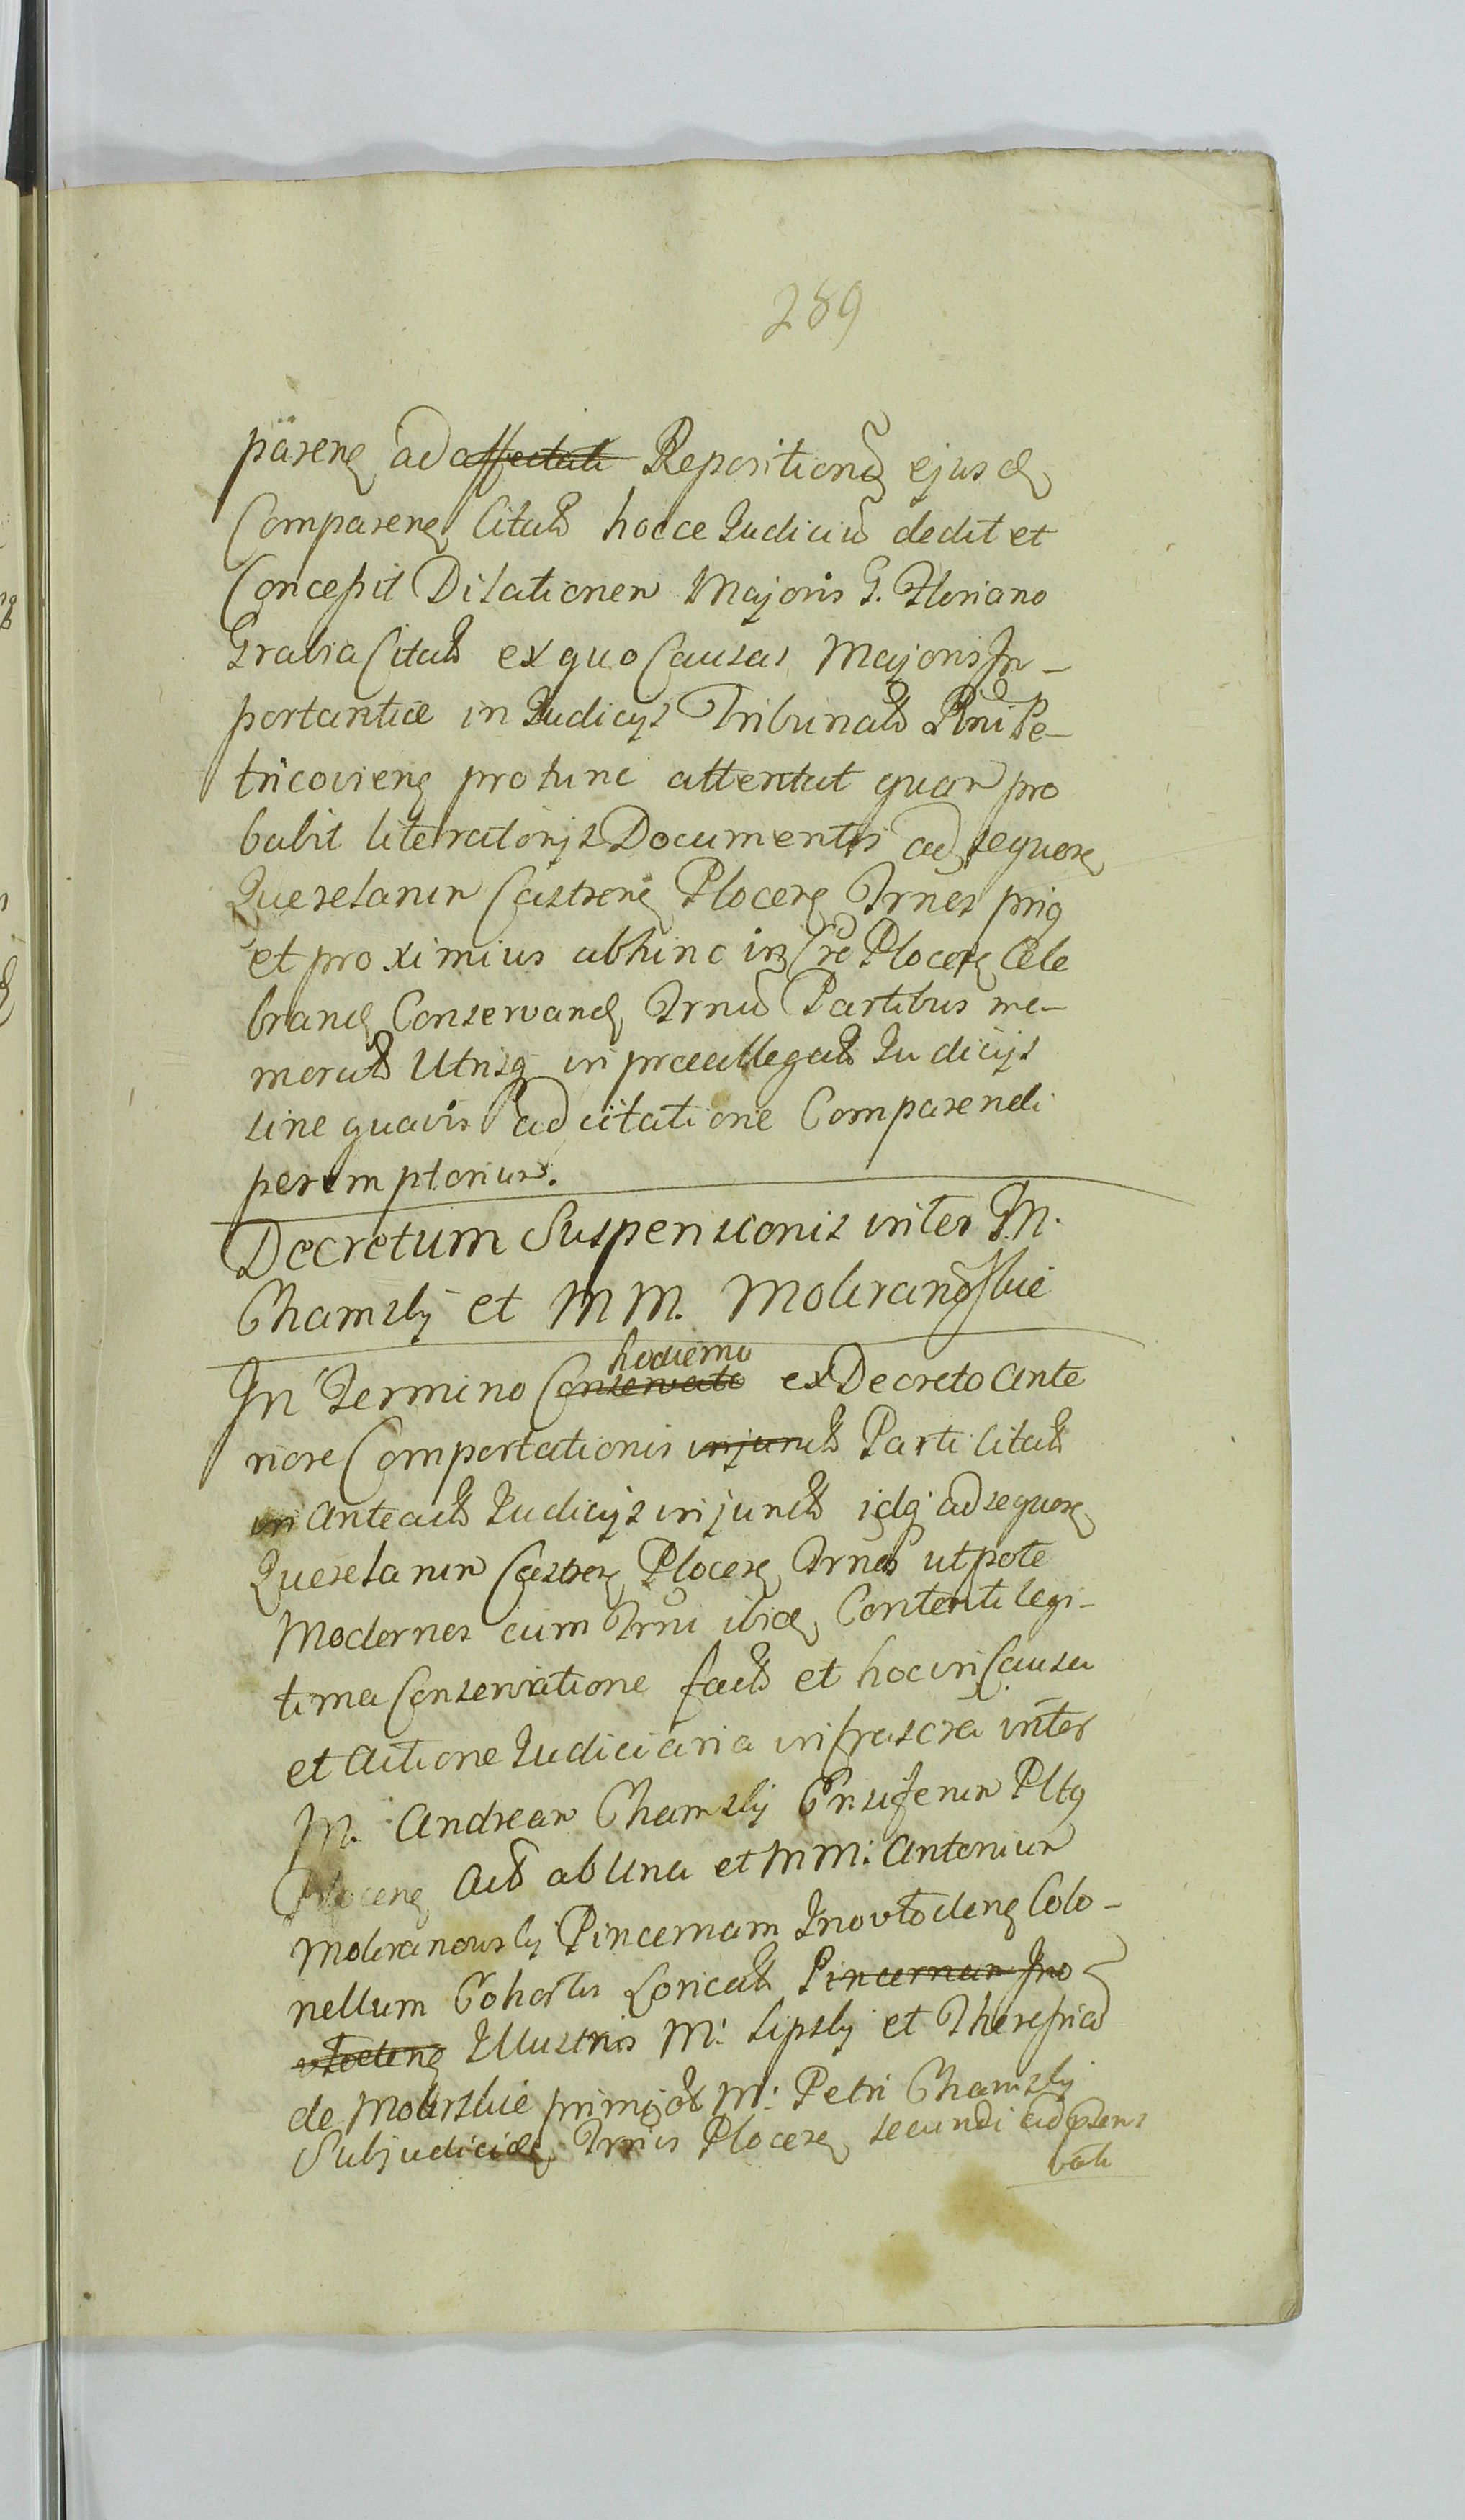 289
pareng ad affectati Repositiong ejusd
Compareng Citatt hocce Judiciu dedit et
Concepit Dilationem Majoris G. Floriano
Grabia Citatt ex quo Causas Majoris Im-
portantiae in Judicijs Tribunatt Rni Pe-
tricovieng pro tunc attentat quam pro
babit literatorijs Documentis ad sequore
Querelarum Castreng Ploceng Trnos
et proximius abhinc in Ploceng Cele
brand Conservand Trnu Partibus me-
moratt Utrisq in praeallegatt Judicijs
sine quavis adcitatione Comparendi
peremptorium.
Decretum Suspensionis inter M.
Chamsky et MM. Mokranoskie
hodierno
In Termino Conservato ex Decreto Ante
riore Comportationis injunctt Parti Citatt
in Anteactt Judicijs injunctt idq ad sequore
Querelarum Castren Ploceng Trnos utpote
Modernos cum Trni ibid Contenti legi-
tima Conservatione factt et hoc in Causa
et Actione Judiciaria infrascra inter
M. Andream Chamsky Ensiferum
Ploceng Actt ab Una et MM: Antonium
Mokranowsky Pincernam Inowtodeng Colo-
nellum Cohortis Loricatt Pincernam Ino
wtodeng Illustris M: Lipsky et Theresia
de Mokrskie primi ac M: Petri Chamsky
Subjudicid Trnis Ploceng secundi adpsens
vati